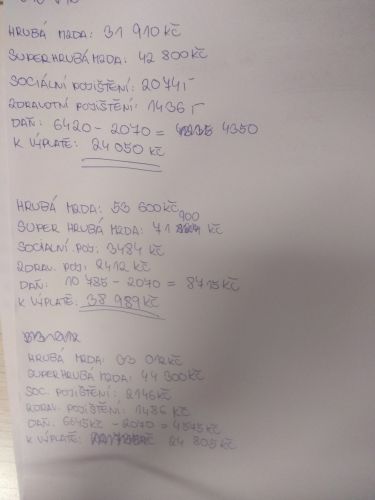 HRUBÁ MZDA: 31 910 KČ
SUPERHRUBÁ MZDA: 42 800 KČ
SOCIÁLNÍ POJIŠTĚNÍ: 2074,-
ZDRAVOTNÍ POJIŠTĚNÍ: 1436,-
DAŇ: 6420 - 2070 = 4350
K VÝPLATĚ: 24 050 KČ
HRUBÁ MZDA: 53 600 KČ
SUPER HRUBÁ MZDA: 71 900 KČ
SOCIÁLNÍ POJ: 3484 KČ
ZDRAV. POJ: 2412 KČ
DAŇ: 10 785 - 2070 = 8715 KČ
K VÝPLATĚ: 38 989 KČ
HRUBÁ MZDA: 33 012 KČ
SUPERHRUBÁ MZDA: 44 300 KČ
SOC. POJIŠTĚNÍ: 2146 KČ
ZDRAV. POJIŠTĚNÍ: 1486 KČ
DAŇ: 6645 KČ - 2070 = 4575 KČ
K VÝPLATĚ: 24 805 KČ